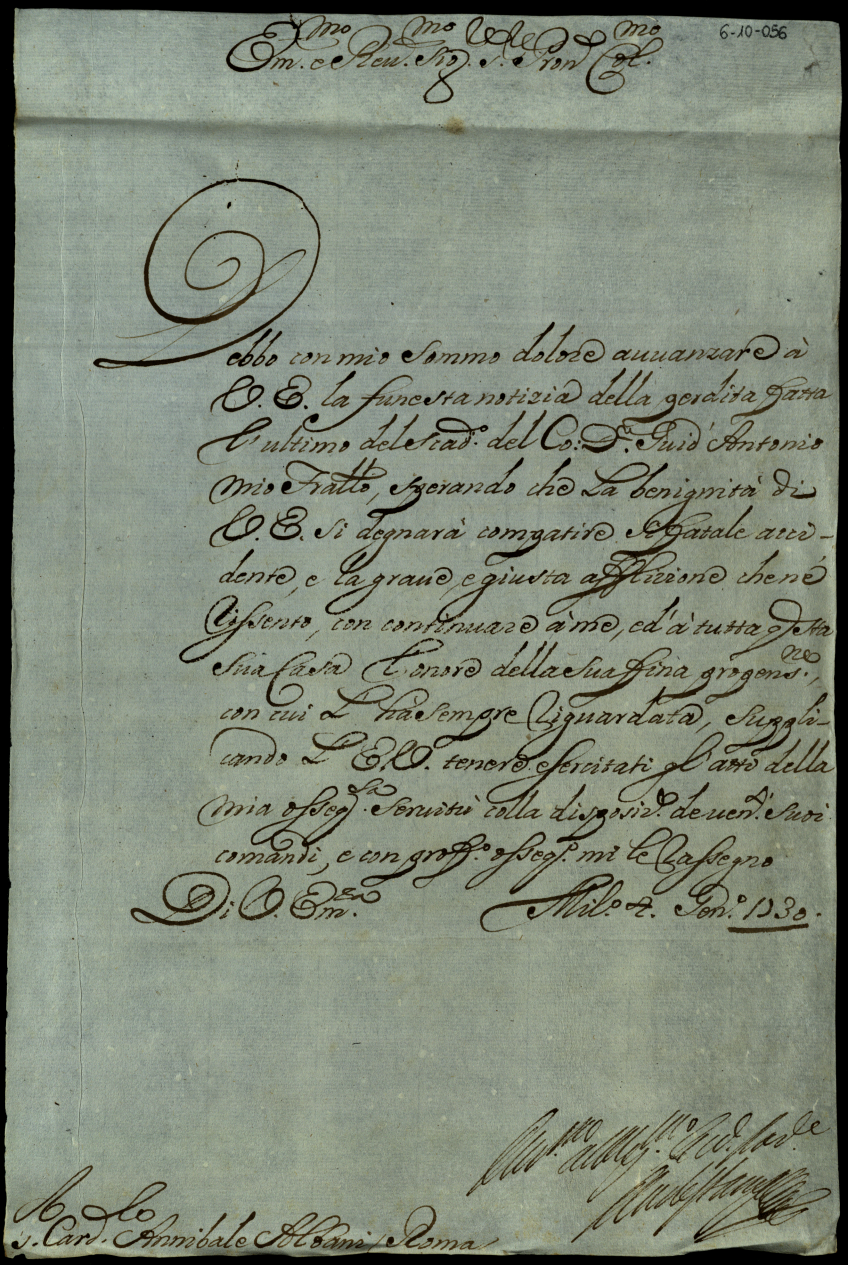 6-10-056
Em.mo e Reu.mo Sig.re S.re Pron Col.mo
Debbo con mio Sommo dolore auuanzare à
V. E. la funesta notizia della perdita fatta
l'ultimo del scad.o del Co: D.n Guid'Antonio
mio Fratello, sperando che La benignità di
V. E. si degnarà compatire si fatale acci-
dente, e la graue, e giusta afflizione che nè
rissento, con continuare à me, ed'à tutta q.sta
sua Casa l'onore della sua fina propens.ne,
con cui L'hà sempre riguardata, suppli-
cando L'E.V. tenere esercitati gl'atti della
mia osseq.ma seruitù colla disposiz.e de uen.ti suoi
comandi, e con proff.o osseq.o mi le rassegno
Di V. Em.za Mil.o 4. Gen.o 1730.
S. Card. Annibale Albani, Roma